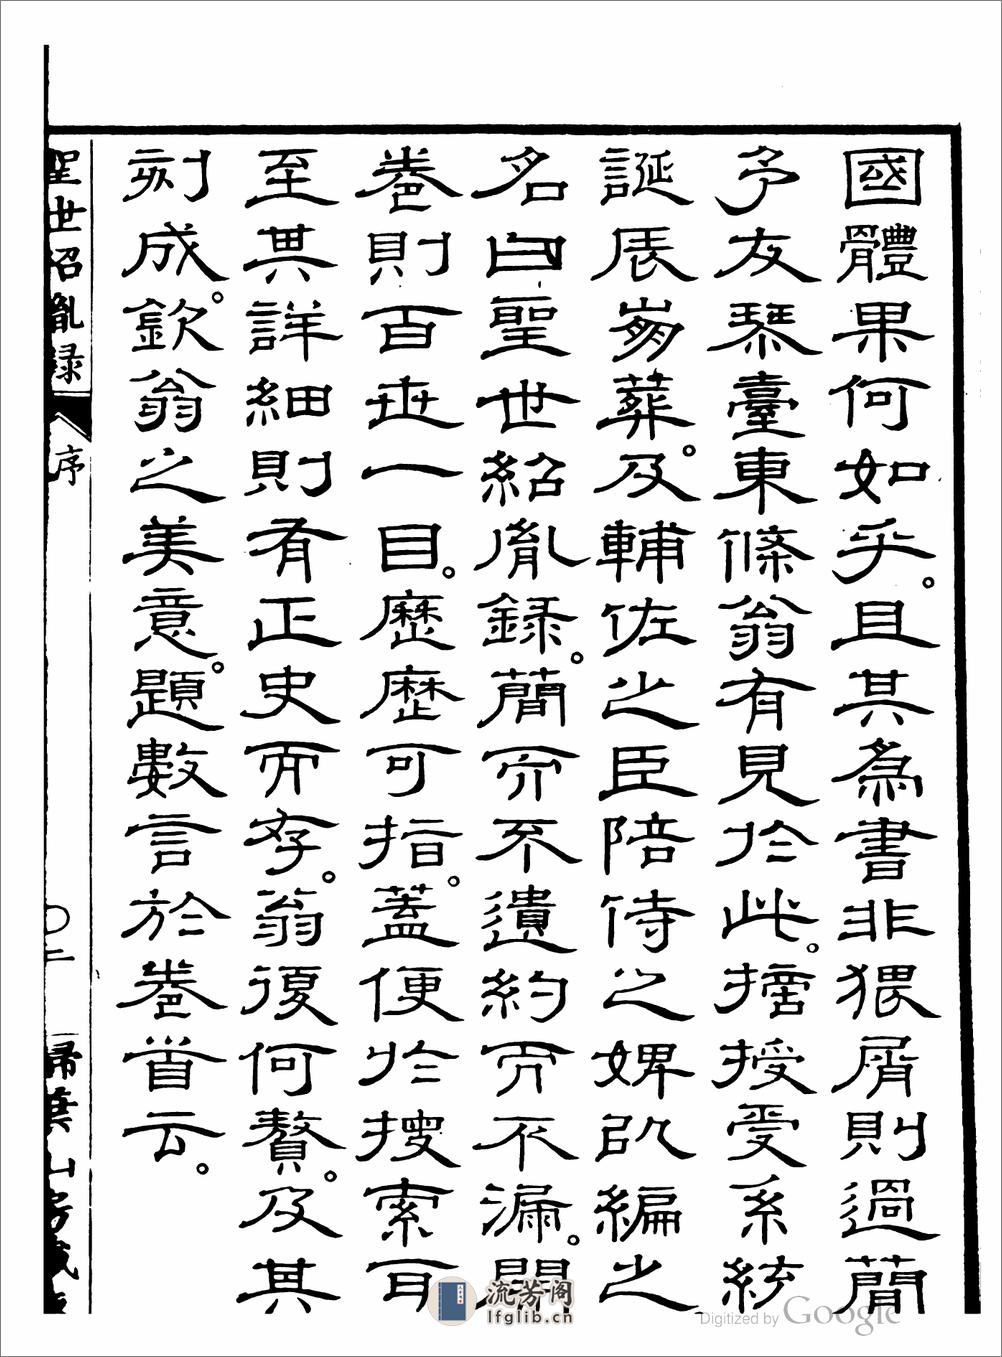 國體果何如乎。且其為書非猥屑則過簡
予友琹臺東條翁有見於此。授受系統
誕辰崩葬。及輔佐之臣陪侍之婢以編之
名曰聖世紹胤録。簡而不遺約而不漏。開
卷則百世一目。歷歷可指。蓋便於搜索耳
至其詳細則有正史而存。翁復何贅。及其
刻成。欽翁之美意。題數言於卷首云。
聖世紹胤録 序 〇二 掃葉山房藏
流芳阁
lfglib.cn
Digitized by Google